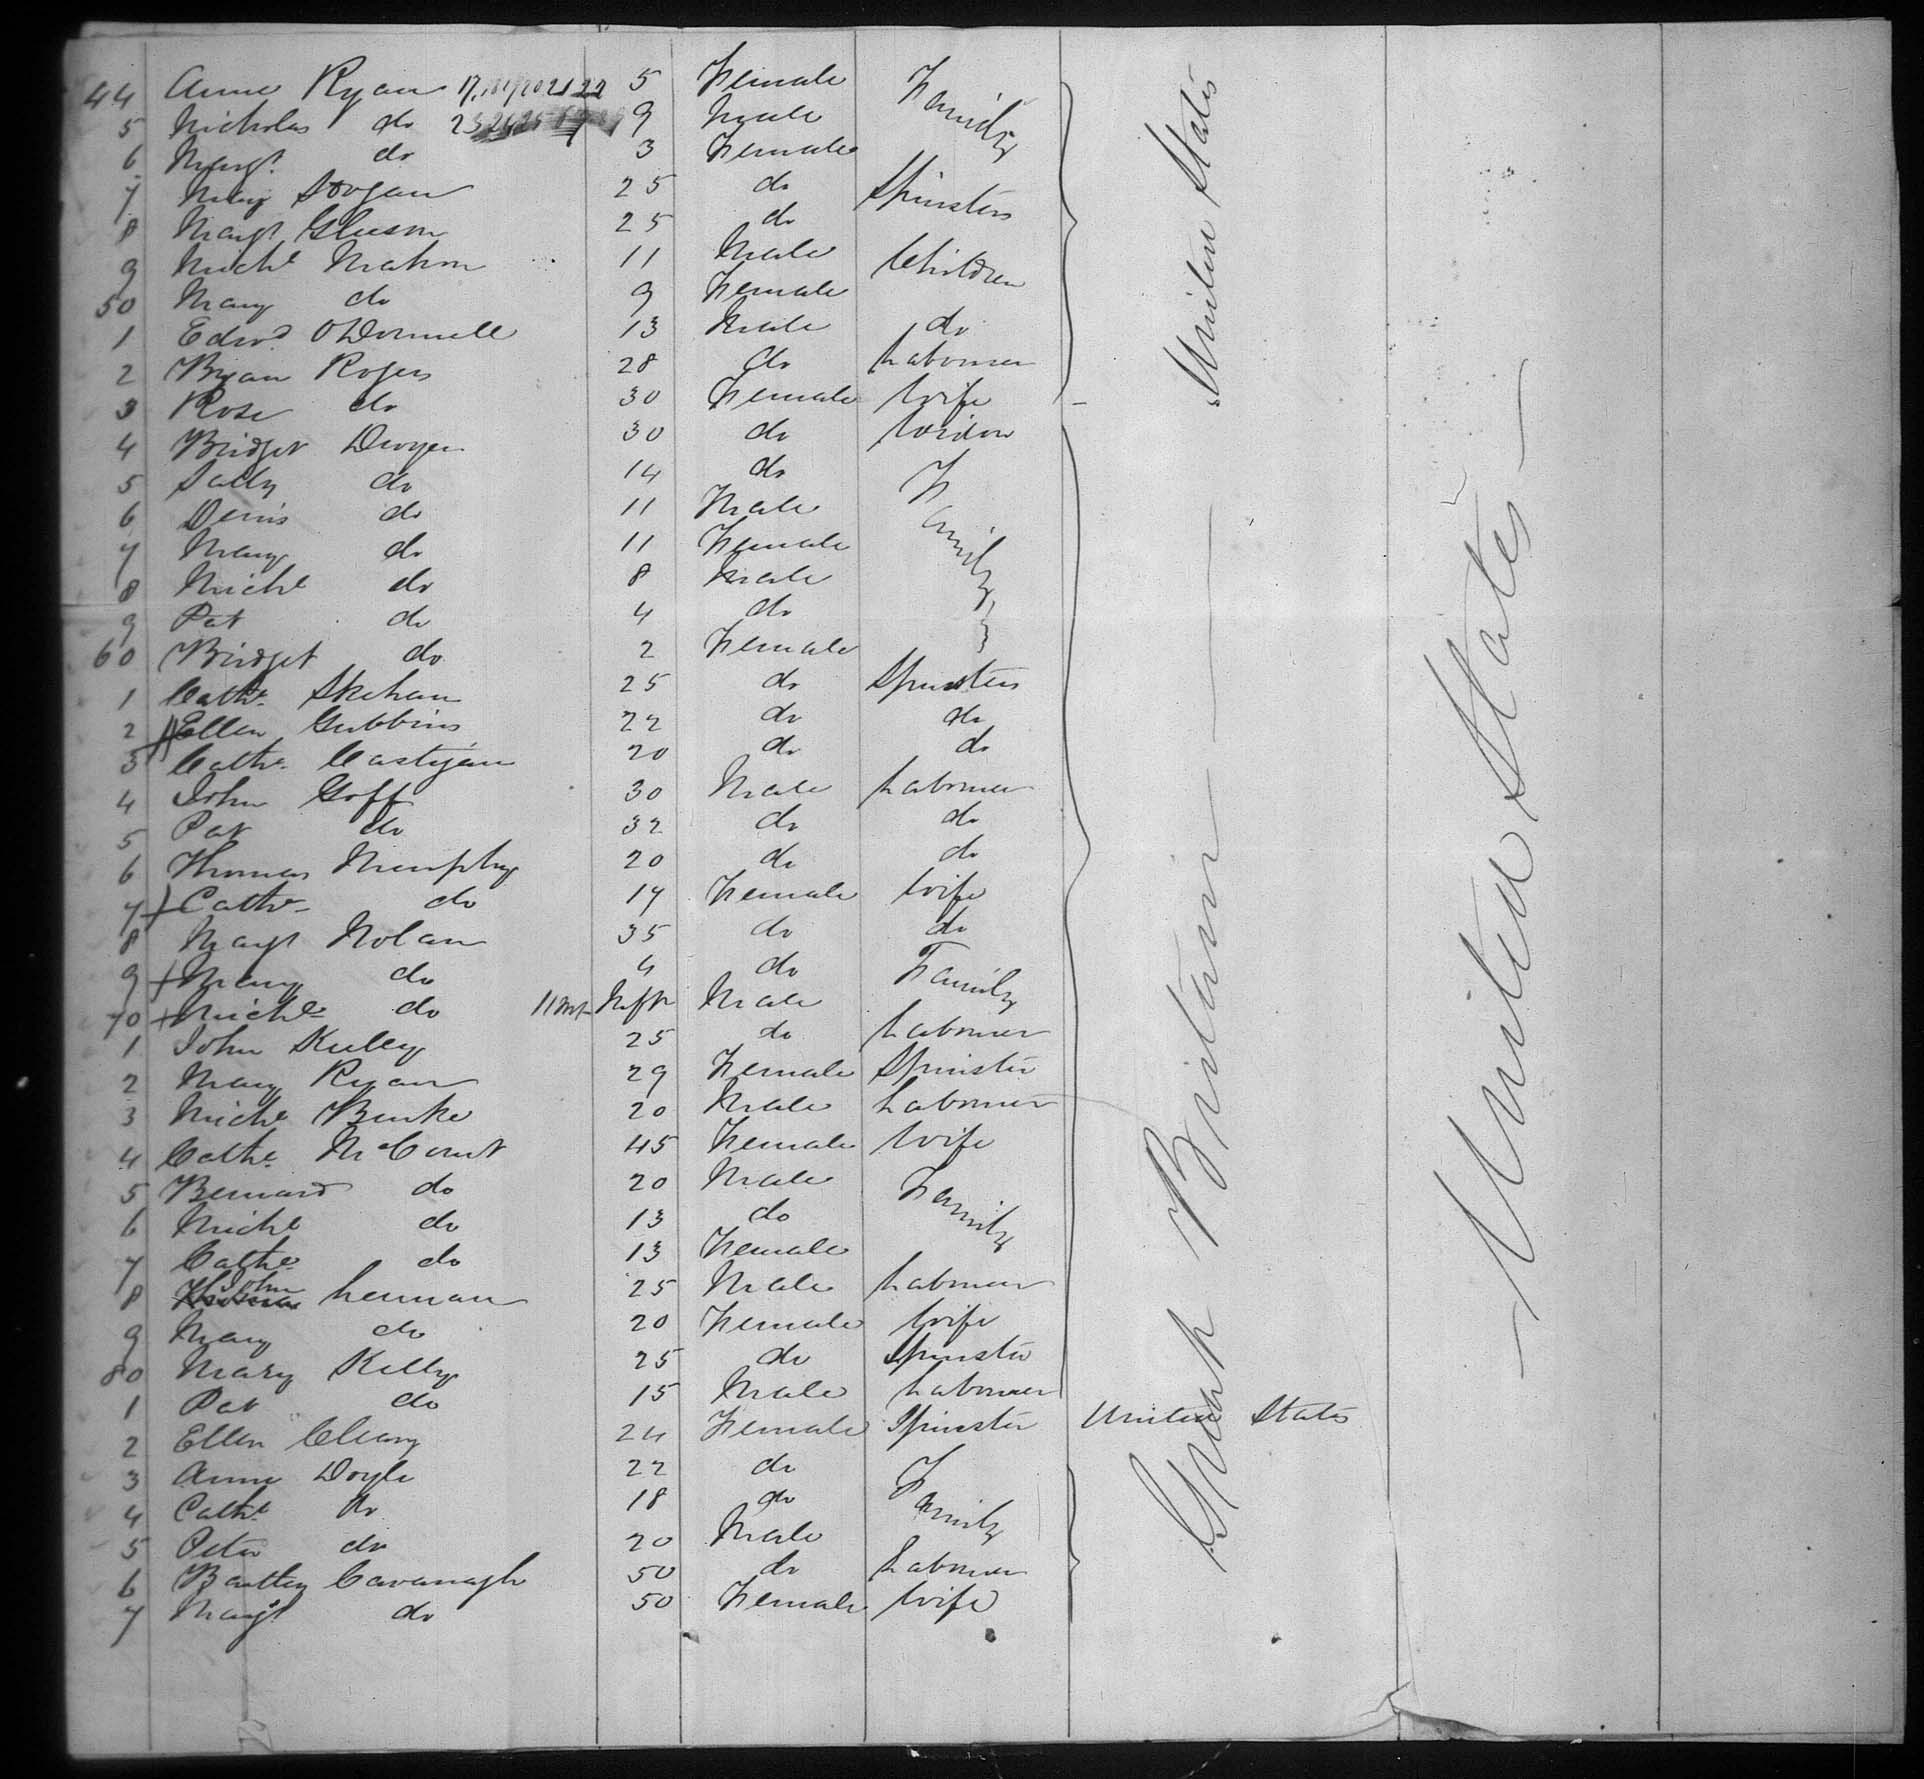 44 Anne Ryan 5 Female Family
5 Nicholas do 9 Male
6 Margt do 3 Female
7 Mary Dogan 25 do Spinsters
8 Margt Gleeson 25 do
9 Michl Mahon 11 Male Children
50 Mary do 9 Female
1 Edwd O'Donnell 13 Male do
2 Bryan Rogers 28 do Labourer
3 Rose do 30 Female Wife
4 Bridget Dwyer 30 do Widow
5 Sally do 14 do Family
6 Denis do 11 Male
7 Mary do 11 Female
8 Michl do 8 Male
9 Pat do 4 do
60 Bridget do 2 Female
1 Cathe Skehan 25 do Spinsters
2 Ellen Gubbins 22 do do
3 Cathe Costigan 20 do do
4 John Goff 30 Male Labourer
5 Pat do 32 do do
6 Thomas Murphy 20 do do
7 Cathe do 19 Female Wife
8 Margt Nolan 35 do do
9 Mary do 4 do Family
70 Michl do 11 mt Infn Male
1 John Kelley 25 do Labourer
2 Mary Ryan 29 Female Spinster
3 Michl Burke 20 Male Labourer
4 Cathe McCourt 45 Female Wife
5 Bernard do 20 Male Family
6 Michl do 13 do
7 Cathe do 13 Female
8 John Lennan 25 Male Labourer
9 Mary do 20 Female Wife
80 Mary Kelly 25 do Spinster
1 Pat do 15 Male Labourer
2 Ellen Cleary 24 Female Spinster United States
3 Anne Doyle 22 do Family
4 Cathe do 18 do
5 Peter do 20 Male
6 Bartley Cavanagh 50 do Labourer
7 Margt do 50 Female Wife
United States
Great Britain
United States